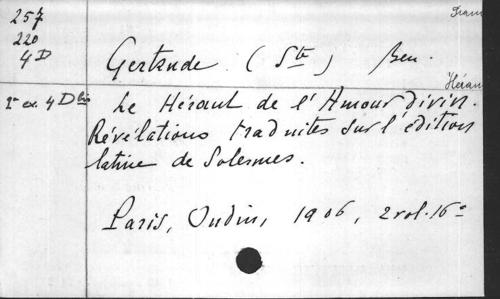 257
220
4 D
Gertrude (Ste) Ben.
2e ex. 4 D bis
Le Héraut de l'Amour divin.
Révélations traduites sur l'édition
latine de Solesmes.
Paris, Oudin, 1906, 2 vol. 16°
Héraut